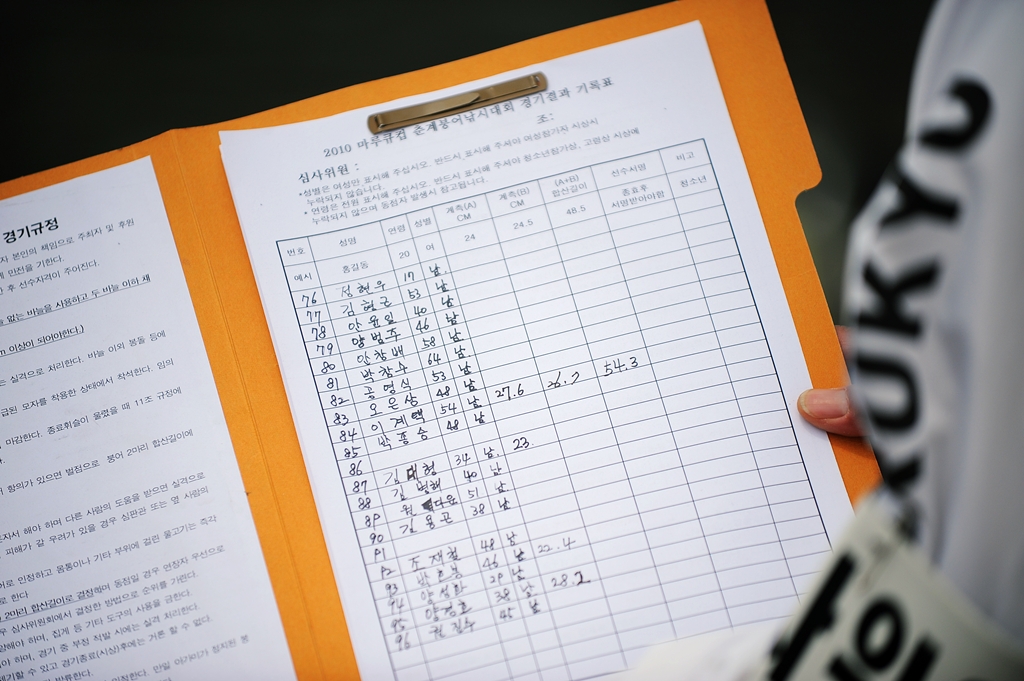 2010 마루큐컵 춘계붕어낚시대회 경기결과 기록표
심사위원 :
조:
*성명은 여성만 표시해 주십시오. 반드시 표시해 주셔야 여성참가자 시상시
누락되지 않습니다.
* 연령은 전원 표시해 주십시오. 반드시 표시해 주셔야 청소년참가상, 고령상 시상에
누락되지 않으며 동점자 발생시 참고됩니다.
번호 성명 연령 성별 계측(A) CM 계측(B) CM (A+B) 합산길이 선수서명 비고
예시 홍길동 20 여 24 24.5 48.5 종료후 서명받아야함 청소년
76 성현우 17 남
77 김형근 53 남
78 안윤일 40 남
79 양범주 46 남
80 안창배 58 남
81 박창수 64 남
82 공명식 53 남
83 오은상 48 남 27.6 26.7 54.3
84 이계택 54 남
85 박종승 48 남
86
87 김대형 34 남 23.
88 김병해 40 남
89 원다운 51 남
90 김용근 38 남
91
92 조재철 48 남
93 46 남 22.4
94 29 남
95 양경호 38 남 28.2
96 권진수 45 남
경기규정
자 본인의 책임으로 주최자 및 후원
에 만전을 기한다.
한 후 선수자격이 주어진다.
을 없는 바늘을 사용하고 두 바늘 이하 채
m 이상이 되어야한다.)
는 실격으로 처리한다. 바늘 이외 봉돌 등에
급된 모자를 착용한 상태에서 착석한다. 임의
마감한다. 종료휘슬이 울렸을 때 11조 규정에
항의가 있으면 벌점으로 붕어 2마리 합산길이에
자서 해야 하며 다른 사람의 도움을 받으면 실격으로
피해가 갈 우려가 있을 경우 심판관 또는 옆 사람의
어로 인정하고 몸통이나 기타 부위에 걸린 물고기는 즉각
로 한다
2마리 합산길이로 결정하며 동점일 경우 연장자 우선으로
우 심사위원회에서 결정한 방법으로 순위를 가린다.
당해야 하며, 집게 등 기타 도구의 사용을 금한다.
야 하며, 경기 중 부정 적발 시에는 실격 처리한다.
제기할 수 있고 경기종료(시상)후에는 거론 할 수 없다.
KUKYU